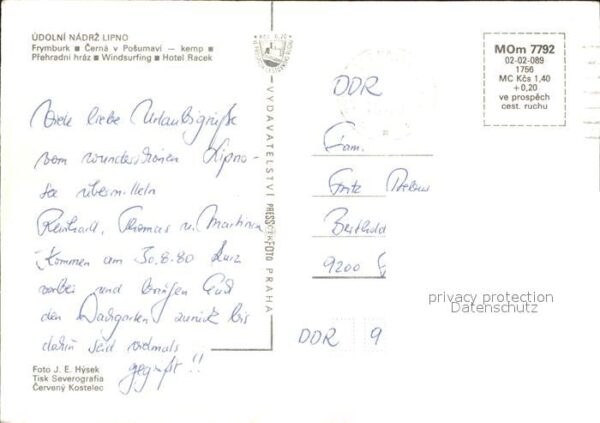 ÚDOLNÍ NÁDRŽ LIPNO
Frymburk ■ Černá v Pošumaví — kemp ■
Přehradní hráz ■ Windsurfing ■ Hotel Racek
Viele liebe Urlaubsgrüße
vom wunderschönen Lipno-
See übermitteln
Reinhard, Thomas u. Martina
Kommen am 30.8.80 kurz
vorbei und bringen Euch
den zurück bis
dahin seid vielmals
gegrüßt!!
Foto J. E. Hýsek
Tisk Severografia
Červený Kostelec
VYDAVATELSTVÍ PRESSFOTO PRAHA
MOm 7792
02-02-089
1756
MC Kčs 1,40
+0,20
ve prospěch
cest. ruchu
DDR
Fam.
Fritz
Berthold
9200
DDR 9
privacy protection
Datenschutz